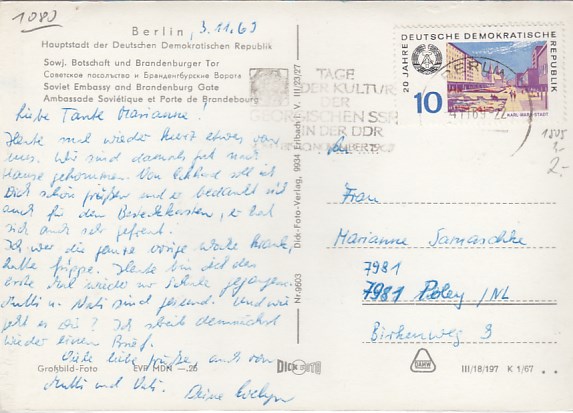 1083
Berlin, 3.11.69
Hauptstadt der Deutschen Demokratischen Republik
Sowj. Botschaft und Brandenburger Tor
Советское посольство и Бранденбургские Ворота
Soviet Embassy and Brandenburg Gate
Ambassade Soviétique et Porte de Brandebourg
Liebe Tante Marianne!
Heute mal wieder kurz etwas von
uns. Wir sind damals gut nach
Hause gekommen. Von Ekkhard soll ich
Dich schön grüßen und er bedankt sich
auch für den Besteckkasten, er hat
sich auch sehr gefreut.
Ich war die ganze vorige Woche krank,
hatte Grippe. Heute bin ich das
erste Mal wieder zur Schule gegangen.
Mutti u. Vati sind gesund. Und wie
geht es Dir? Ich schreib demnächst
wieder einen Brief.
Viele liebe Grüße, auch von
Mutti und Vati. Deine Evelyn
Großbild-Foto EVP MDN —.25
Dick-Foto-Verlag, 9934 Erlbach i. V. III/23/27
Nr. 9603
DICK FOTO
TAGE
DER KULTUR
DER
GEORGISCHEN SSR
IN DER DDR
NOVEMBER 1969
20 JAHRE DEUTSCHE DEMOKRATISCHE REPUBLIK
10
KARL-MARX-STADT
11.69-22
1505
3-
2.-
An
Frau
Marianne Samaschke
7981
7981 Poley /NL
Birkenweg 3
III/18/197 K 1/67